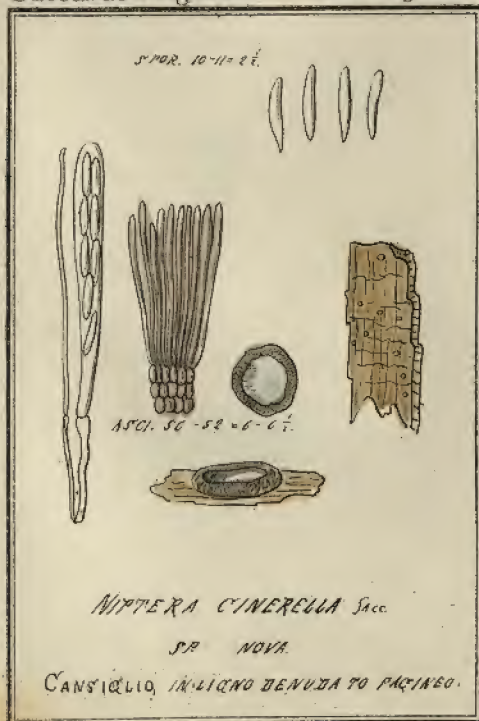 SPOR. 10-11=2½.
ASCI. 50-52=6-6½.
NIPTERA CINERELLA Sacc.
SP. NOVA.
CANSIGLIO, IN LIGNO DENUDATO FAGINEO.